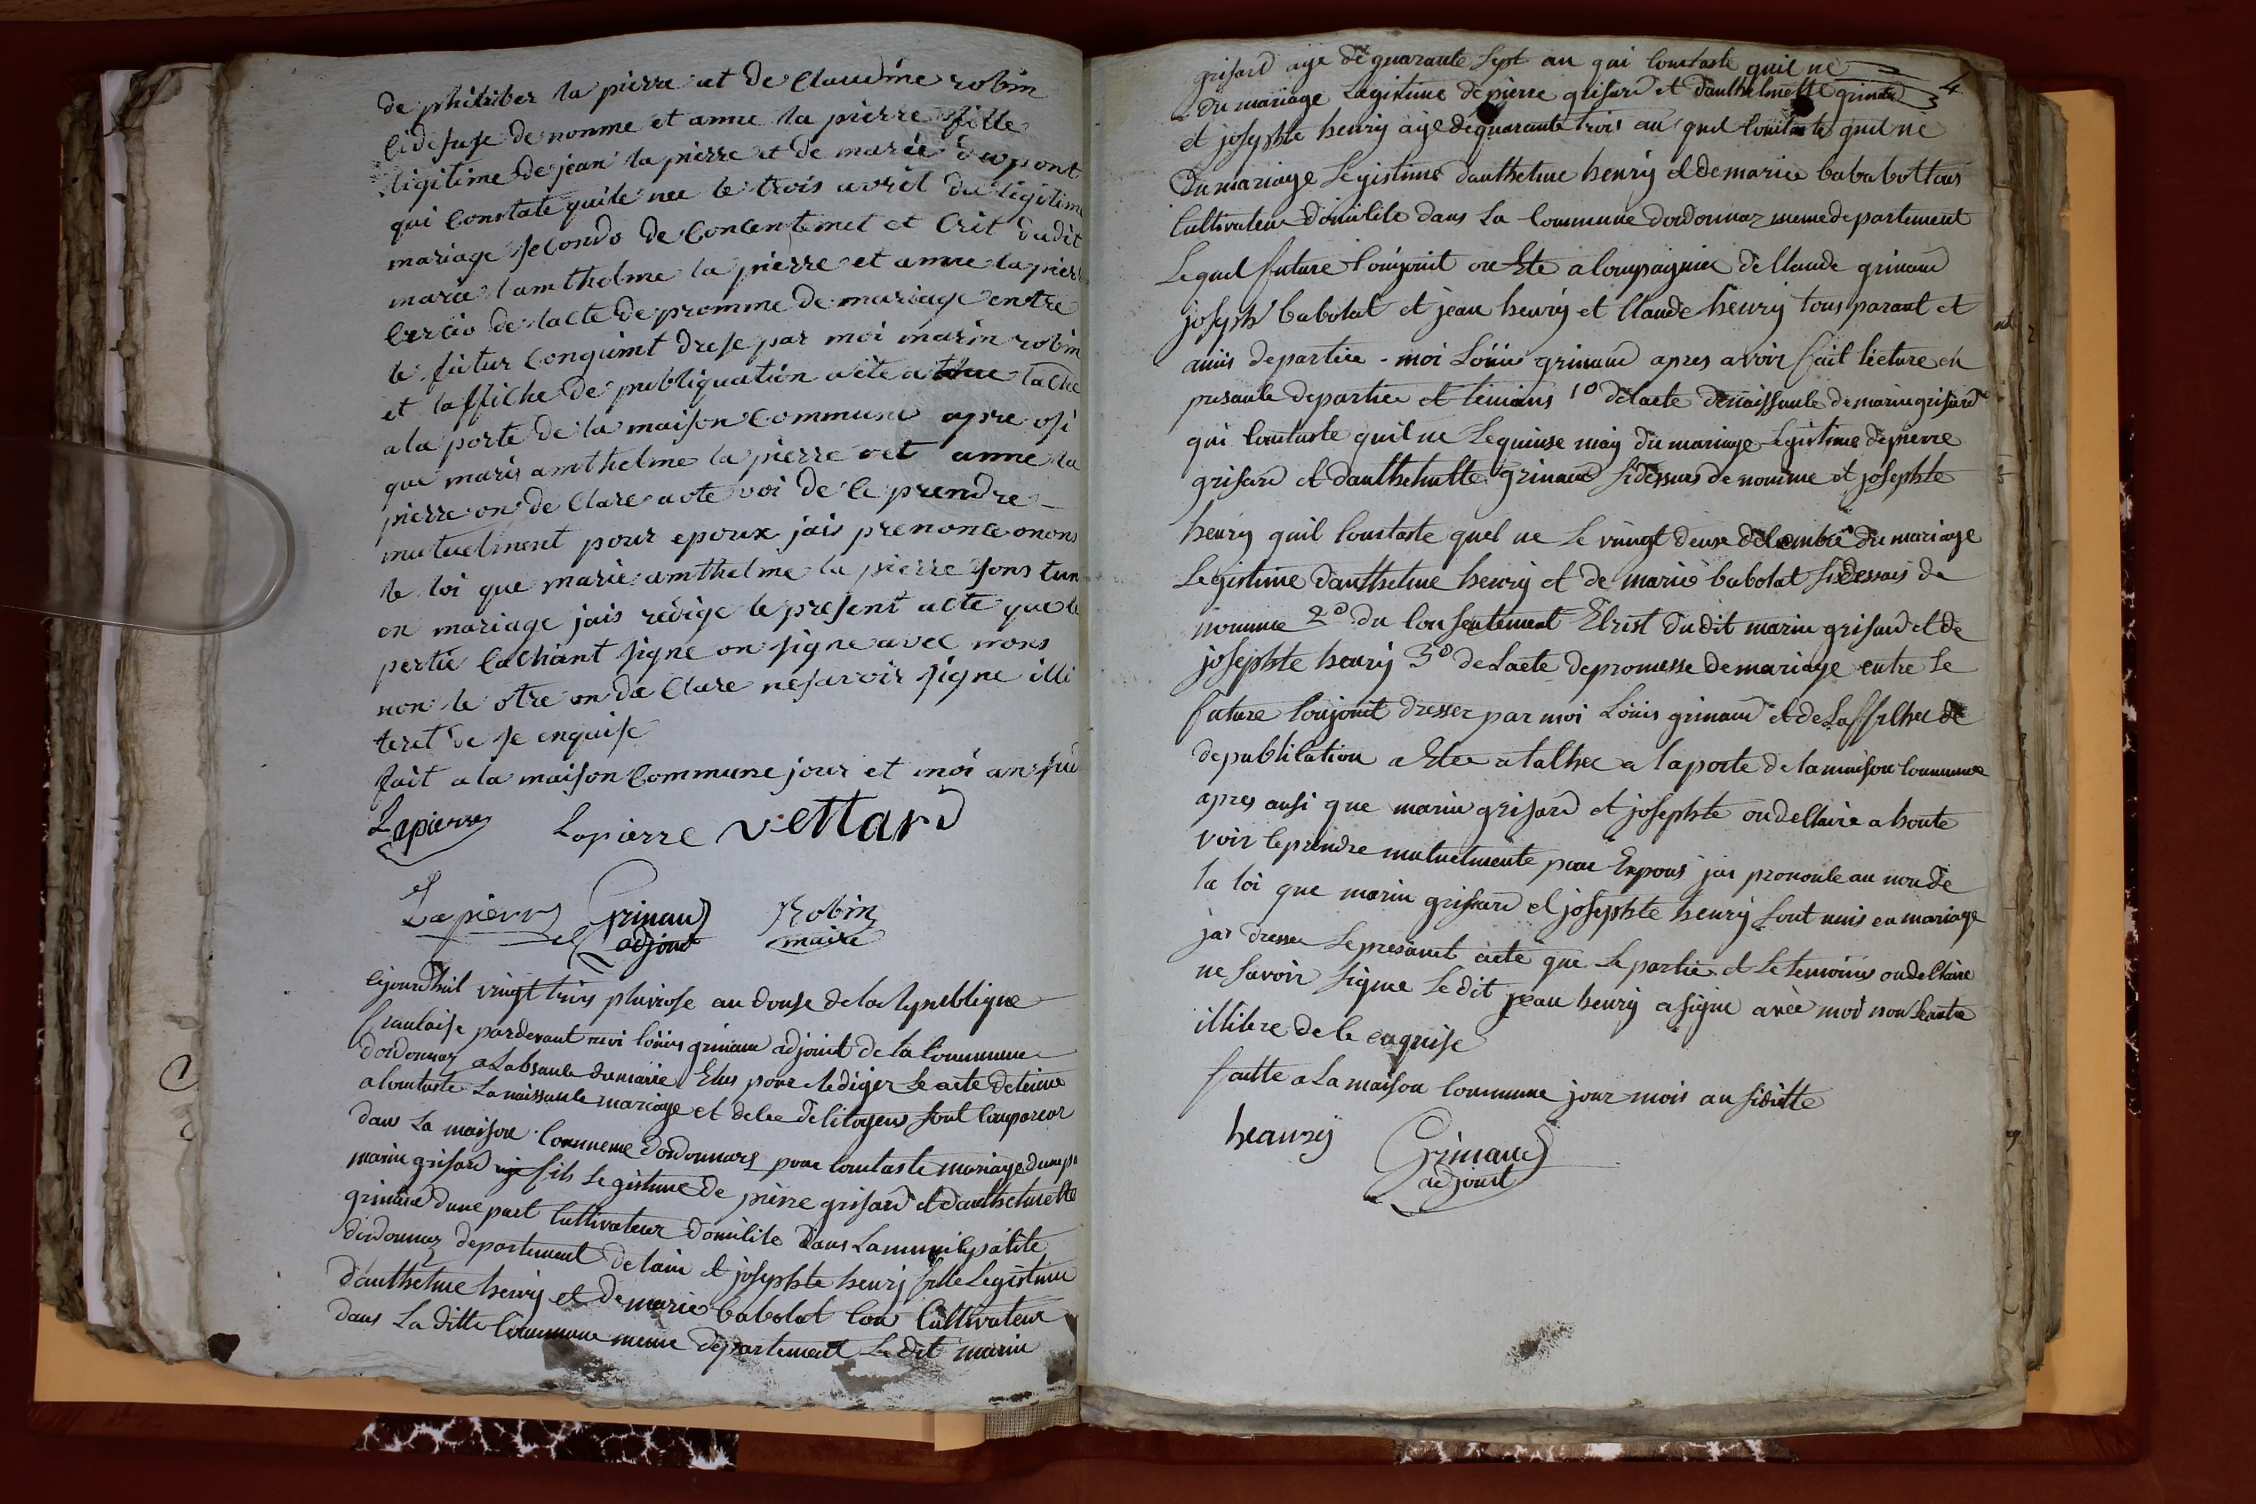 de philiber la pierre et de Claudine robin
Cidesuse de nomme et anne la pierre fille
ligitime de jean la pierre et de marie dupont
qui Constate quile nee le trois avril du ligitime
mariage secondo de Concentemet et Crit dudit
marie amthelme la pierre et anne la pierr
tercio de lacte de promme de mariage entre
le futur Conguint drese par moi marin robin
et laffiche de publiquation a ete a tache
a la porte de la maison Commune apre osi
que marie amthelme la pierre et anne la
pierre on de Clare aote voi de le prendre
mutuelment pour epoux jais prenonce onons
le loi que marie amthelme la pierre sons tun
en mariage jais redige le present acte que le
pertie Cachant signe on signe avec mons
non le otre on de Clare nesavoir signe illi
teret de se enquise
fait a la maison Commune jour et moi an sud
Lapierre Lapierre vettard
Lapierre Grinand Robin
adjoint maire
ejourdhuit vingt trois pluviose an douse de la republique
francaise pardevant moi louis grinand adjoint de la Commune
dordonnaz a Labsance dumaire Elus pour rediger Le acte detinne
a Contaste La naissance mariage et dece de citoyen sont Compareor
dans La maison Commeme dordonnaz pour Contaste mariage dunep
marin grisard fils Legistime de pierre grisard et danthelmette
grinand dune part Cultivateur domicile dans La municipalite
dordonnaz departement de lain et josephte henrij fille Legistime
danthelme henrij et de marie babolat Cou Cultivateur
dans La ditte Commune meme departement Le dit marin
4
grisard age de quarante Sept an qui Contaste quil ne
Du mariage Legistime de pierre grisard et danthelmette grinand
et josephte henrij age de quarante trois an quel Contaste quel ne
Du mariage Legistime danthelme henrij et de marie bababot tous
Cultivateur domicile dans La Commune dordonnaz meme departement
Lequel future Conjoint on Ete a Compagnie de Claude grinand
joseph babolat et jean henrij et Claude henrij tous parant et
amis departie - moi Louis grinand apres avoir fait lecture en
presante departie et temoins 1o de lacte denaissante de marin grisard
qui Contaste quil ne Lequinse may du mariage Legistime de pierre
grisard et danthelmette grinand sidessus de nomme et josephte
henrij quil Contaste quel ne Le vingt deuse decembre du mariage
Legistime danthelme henrij et de marie babolat sidessus de
nomme 2o du Consentement Ecrist du dit marin grisard et de
josephte henrij 3o de Lacte de promesse de mariage entre Le
future Conjoint dresser par moi Louis grinand et de Laffiche de
depublication a Ete a tache a la porte de la maison Commune
apres ausi que marin grisard et josephte on declaire a houte
voir Leprendre mutuelmente pour Expous jai prononce au non de
la loi que marin grisard et josephte henrij Sont unis en mariage
jai dresse Lepresant acte que Le partie et Le temoins on declaire
ne Savoir Signe Le dit jean henrij a signe avec moi non Leautre
illitere de le enquise
faitte a La maison Commune jour mois an siditte
heanrij Grinand
adjoint